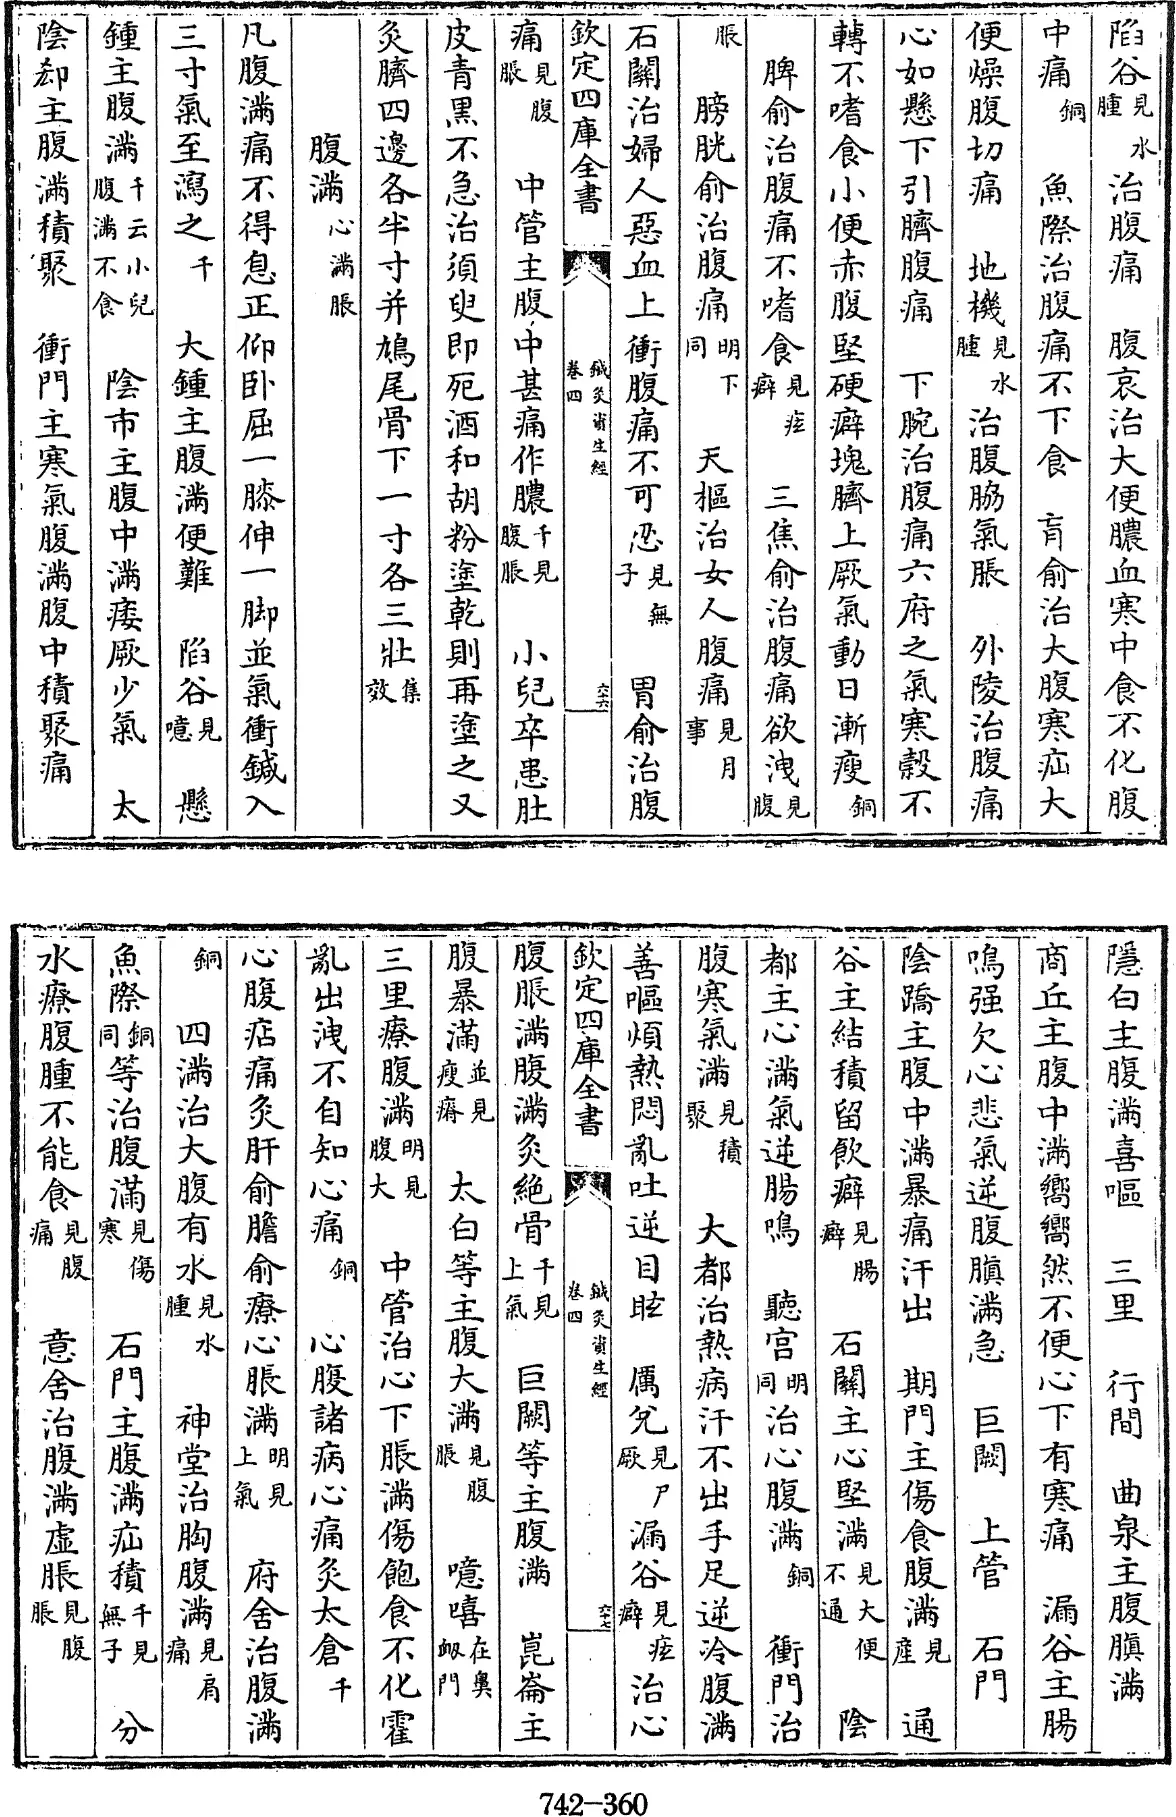 陷谷見水腫治腹痛　腹哀治大便膿血寒中食不化腹
中痛銅　魚際治腹痛不下食　肓俞治大腹寒疝大
便燥腹切痛　地機見水腫治腹脇氣脹　外陵治腹痛
心如懸下引臍腹痛　下脘治腹痛六府之氣寒穀不
轉不嗜食小便赤腹堅硬癖塊臍上厥氣動日漸瘦銅
脾俞治腹痛不嗜食見痃癖　三焦俞治腹痛欲洩見腹
脹　膀胱俞治腹痛明下同　天樞治女人腹痛見月事
石關治婦人惡血上衝腹痛不可忍見無子　胃俞治腹
欽定四庫全書　鍼灸資生經卷四　六十六
痛見腹脹　中管主腹中甚痛作膿千見腹脹　小兒卒患肚
皮青黑不急治須臾即死酒和胡粉塗乾則再塗之又
灸臍四邊各半寸并鳩尾骨下一寸各三壯集效
腹滿心滿脹
凡腹滿痛不得息正仰卧屈一膝伸一脚並氣衝鍼入
三寸氣至瀉之千　大鍾主腹滿便難　陷谷見噫　懸
鍾主腹滿千云小兒腹滿不食　陰市主腹中滿痿厥少氣　太
陰郄主腹滿積聚　衝門主寒氣腹滿腹中積聚痛
隱白主腹滿喜嘔　三里　行間　曲泉主腹䐜滿
商丘主腹中滿嚮嚮然不便心下有寒痛　漏谷主腸
鳴强欠心悲氣逆腹䐜滿急　巨闕　上管　石門
陰蹻主腹中滿暴痛汗出　期門主傷食腹滿見產　通
谷主結積留飲癖見腸癖　石關主心堅滿見大便不通　陰
都主心滿氣逆腸鳴　聽宫明同治心腹滿銅　衝門治
腹寒氣滿見積聚　大都治熱病汗不出手足逆冷腹滿
善嘔煩熱悶亂吐逆目眩　厲兌見尸厥　漏谷見痃癖治心
欽定四庫全書　鍼灸資生經卷四　六十七
腹脹滿腹滿灸絶骨千見上氣　巨闕等主腹滿　崑崙主
腹暴滿並見瘦瘠　太白等主腹大滿見腹脹　噫嘻在鼻衂門
三里療腹滿明見腹大　中管治心下脹滿傷飽食不化霍
亂出洩不自知心痛銅　心腹諸病心痛灸太倉千
心腹痁痛灸肝俞膽俞療心脹滿明見上氣　府舍治腹滿
銅　四滿治大腹有水見水腫　神堂治胸腹滿見肩痛
魚際銅同等治腹滿見傷寒　石門主腹滿疝積千見無子　分
水療腹腫不能食見腹痛　意舍治腹滿虚脹見腹脹
742-360